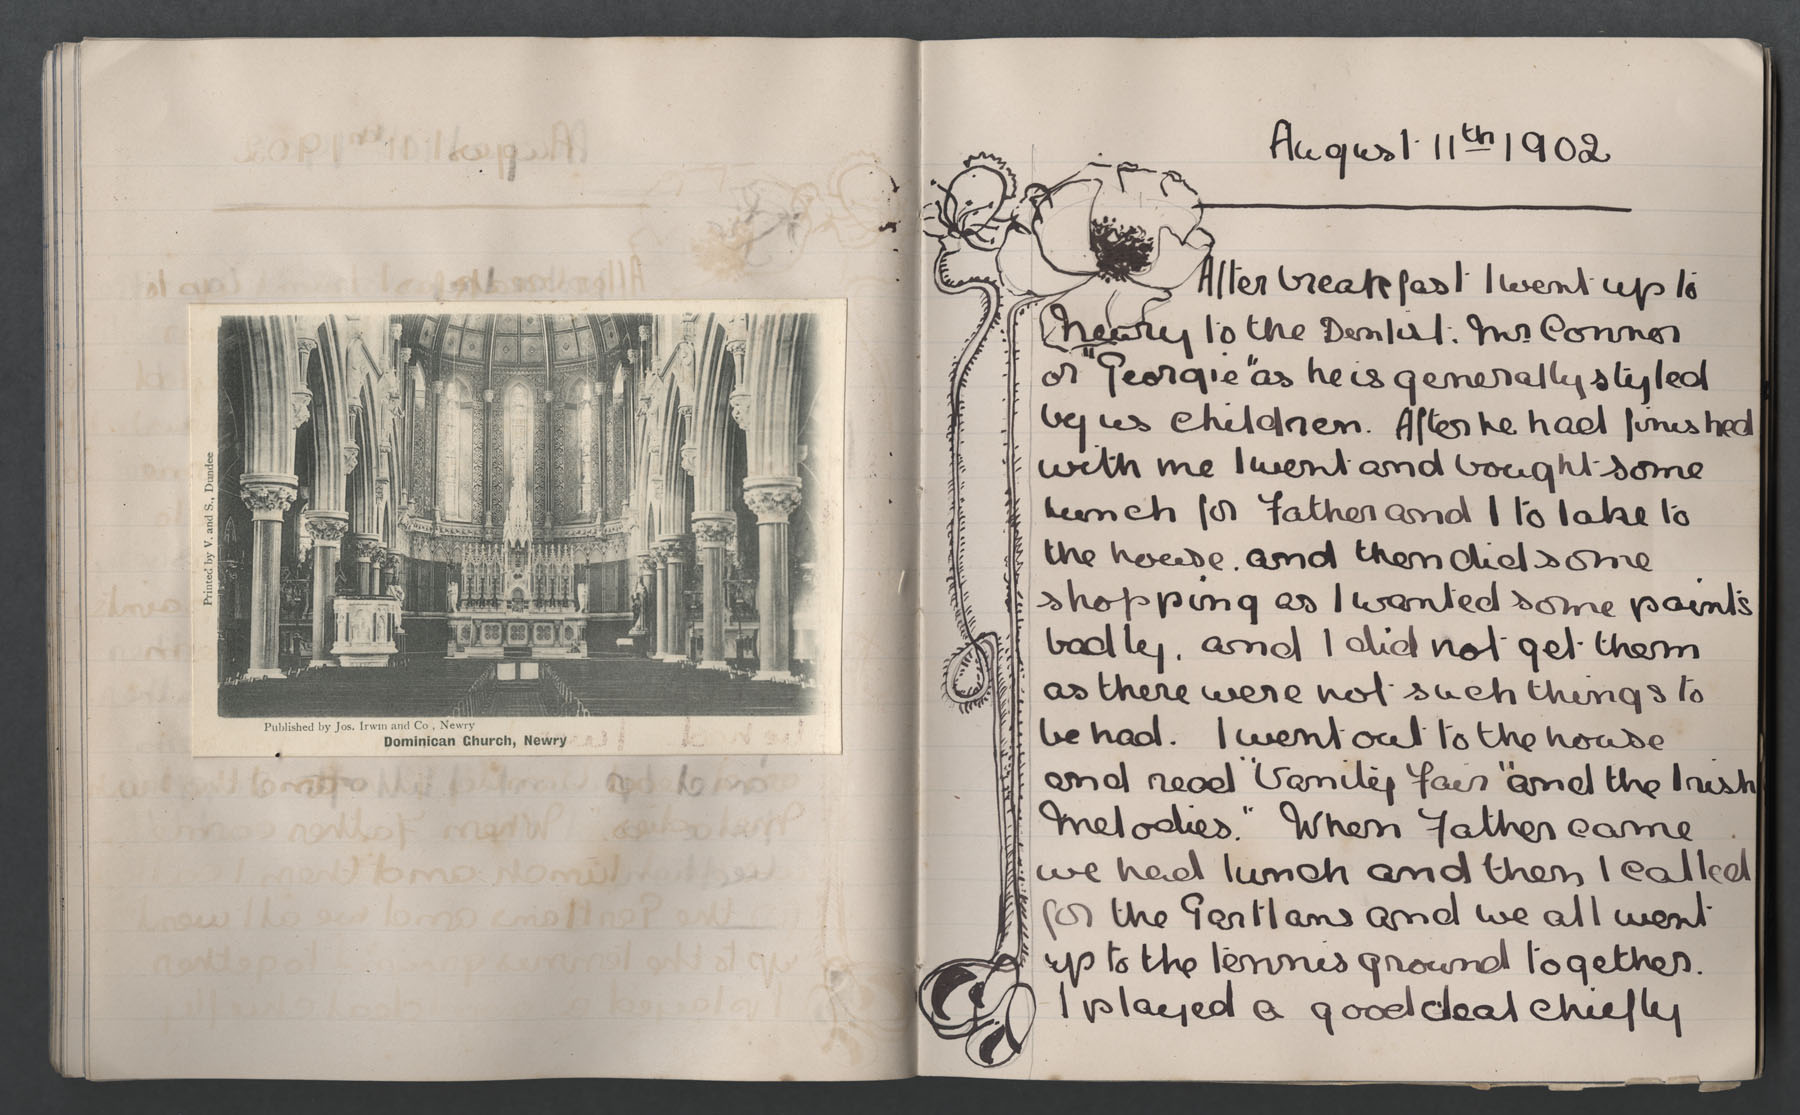 Printed by V. and S., Dundee
Published by Jos. Irwin and Co, Newry
Dominican Church, Newry
August 11th 1902
After breakfast I went up to
Newry to the Dentist. Mr Connor
or "Georgie" as he is generally styled
by us children. After he had finished
with me I went and bought some
lunch for Father and I to take to
the house. and then did some
shopping as I wanted some paints
badly, and I did not get them
as there were not such things to
be had. I went out to the house
and read "Vanity Fair" and the Irish
Melodies." When Father came
we had lunch and then I called
for the Gartlans and we all went
up to the tennis ground together.
I played a good deal chiefly